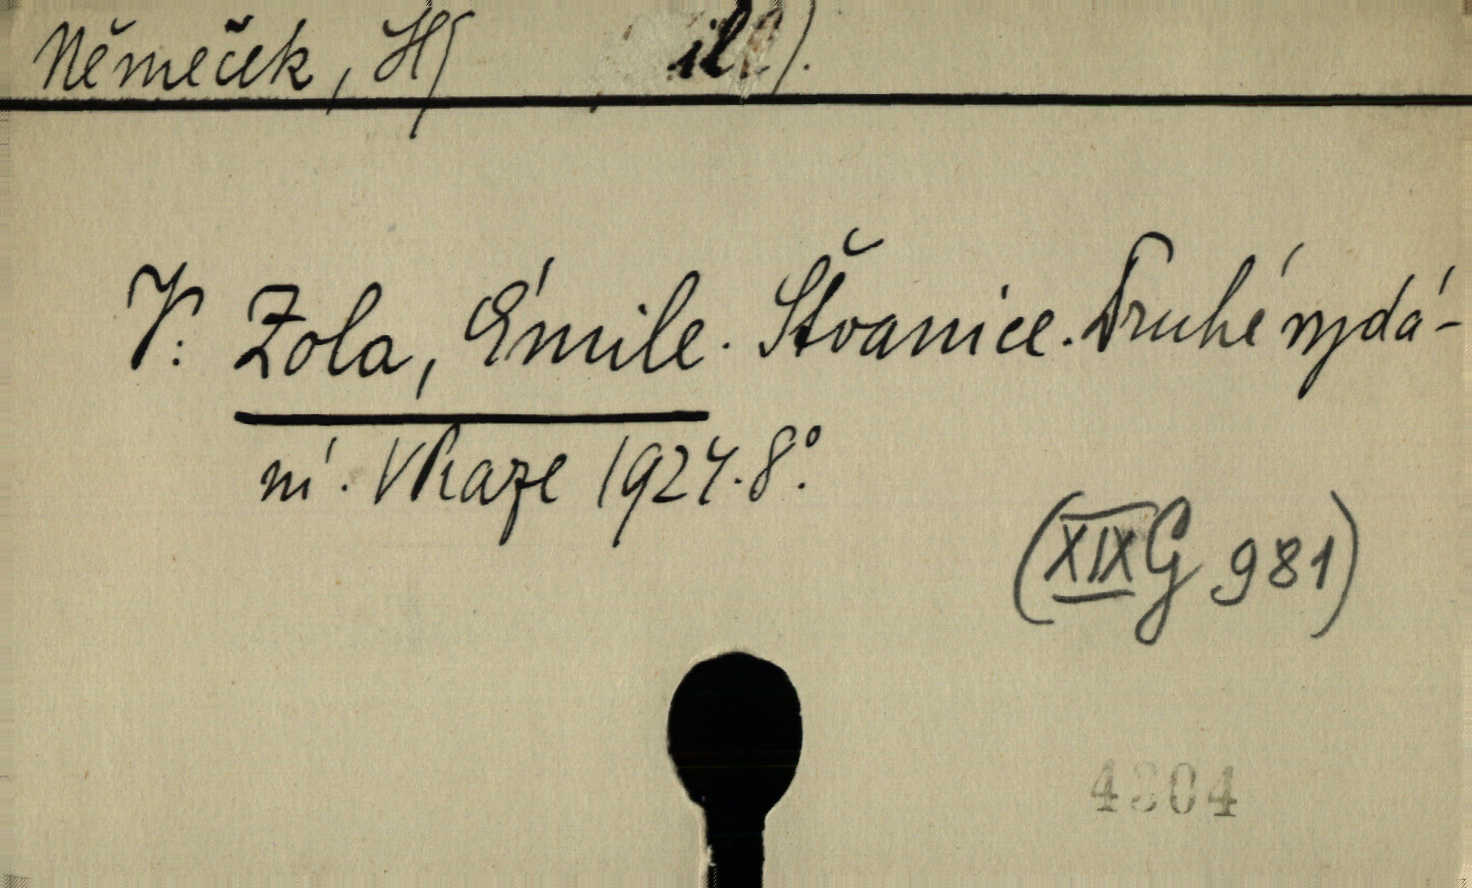 Němeček, H(ill).
V: Zola, Émile. Štvanice. Druhé vydá-
ní. V Praze 1924. 8°.
(XIX G 981)
4304